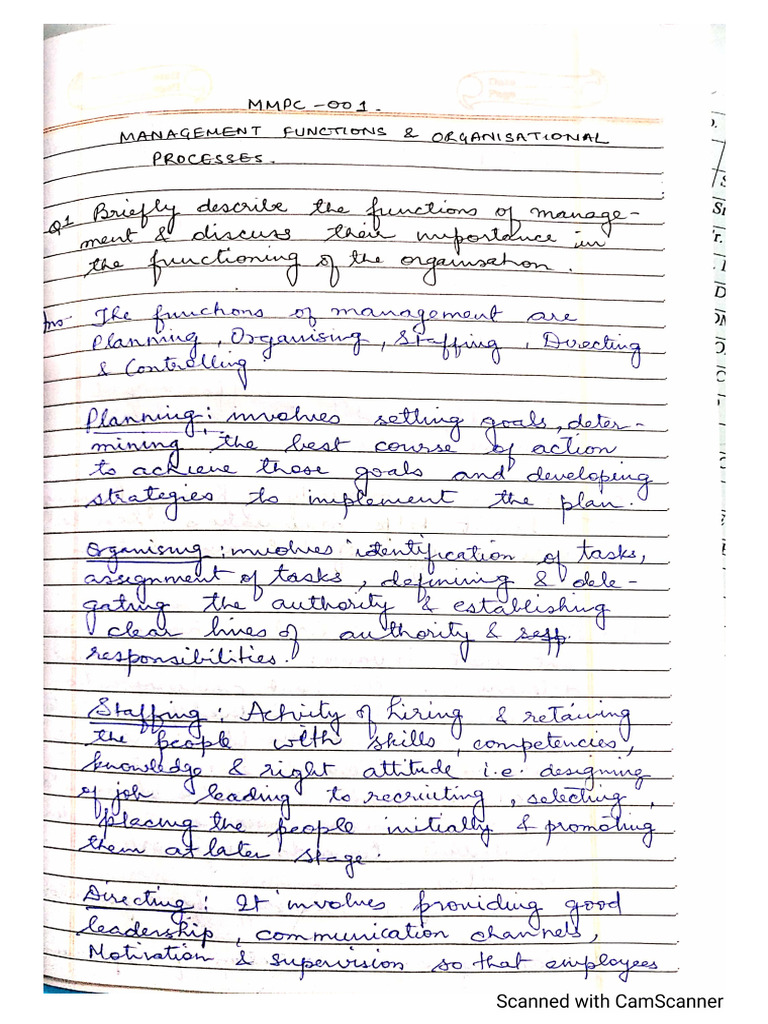 MMPC-001.
MANAGEMENT FUNCTIONS & ORGANISATIONAL
PROCESSES.
Q1 Briefly describe the functions of manage-
ment & discuss their importance in
the functioning of the organisation.
Ans- The functions of management are
Planning, Organising, Staffing, Directing
& Controlling
Planning: involves setting goals, deter-
mining the best course of action
to achieve those goals and developing
strategies to implement the plan.
Organising: involves identification of tasks,
assignment of tasks, defining & dele-
gating the authority & establishing
clear lines of authority & 
responsibilities.
Staffing: Activity of hiring & retaining
the people with skills, competencies,
knowledge & right attitude i.e. designing
of job leading to recruiting, selecting,
placing the people initially & promoting
them at later stage.
Directing: It involves providing good
leadership, communication channels,
Motivation & supervision so that employees
Scanned with CamScanner